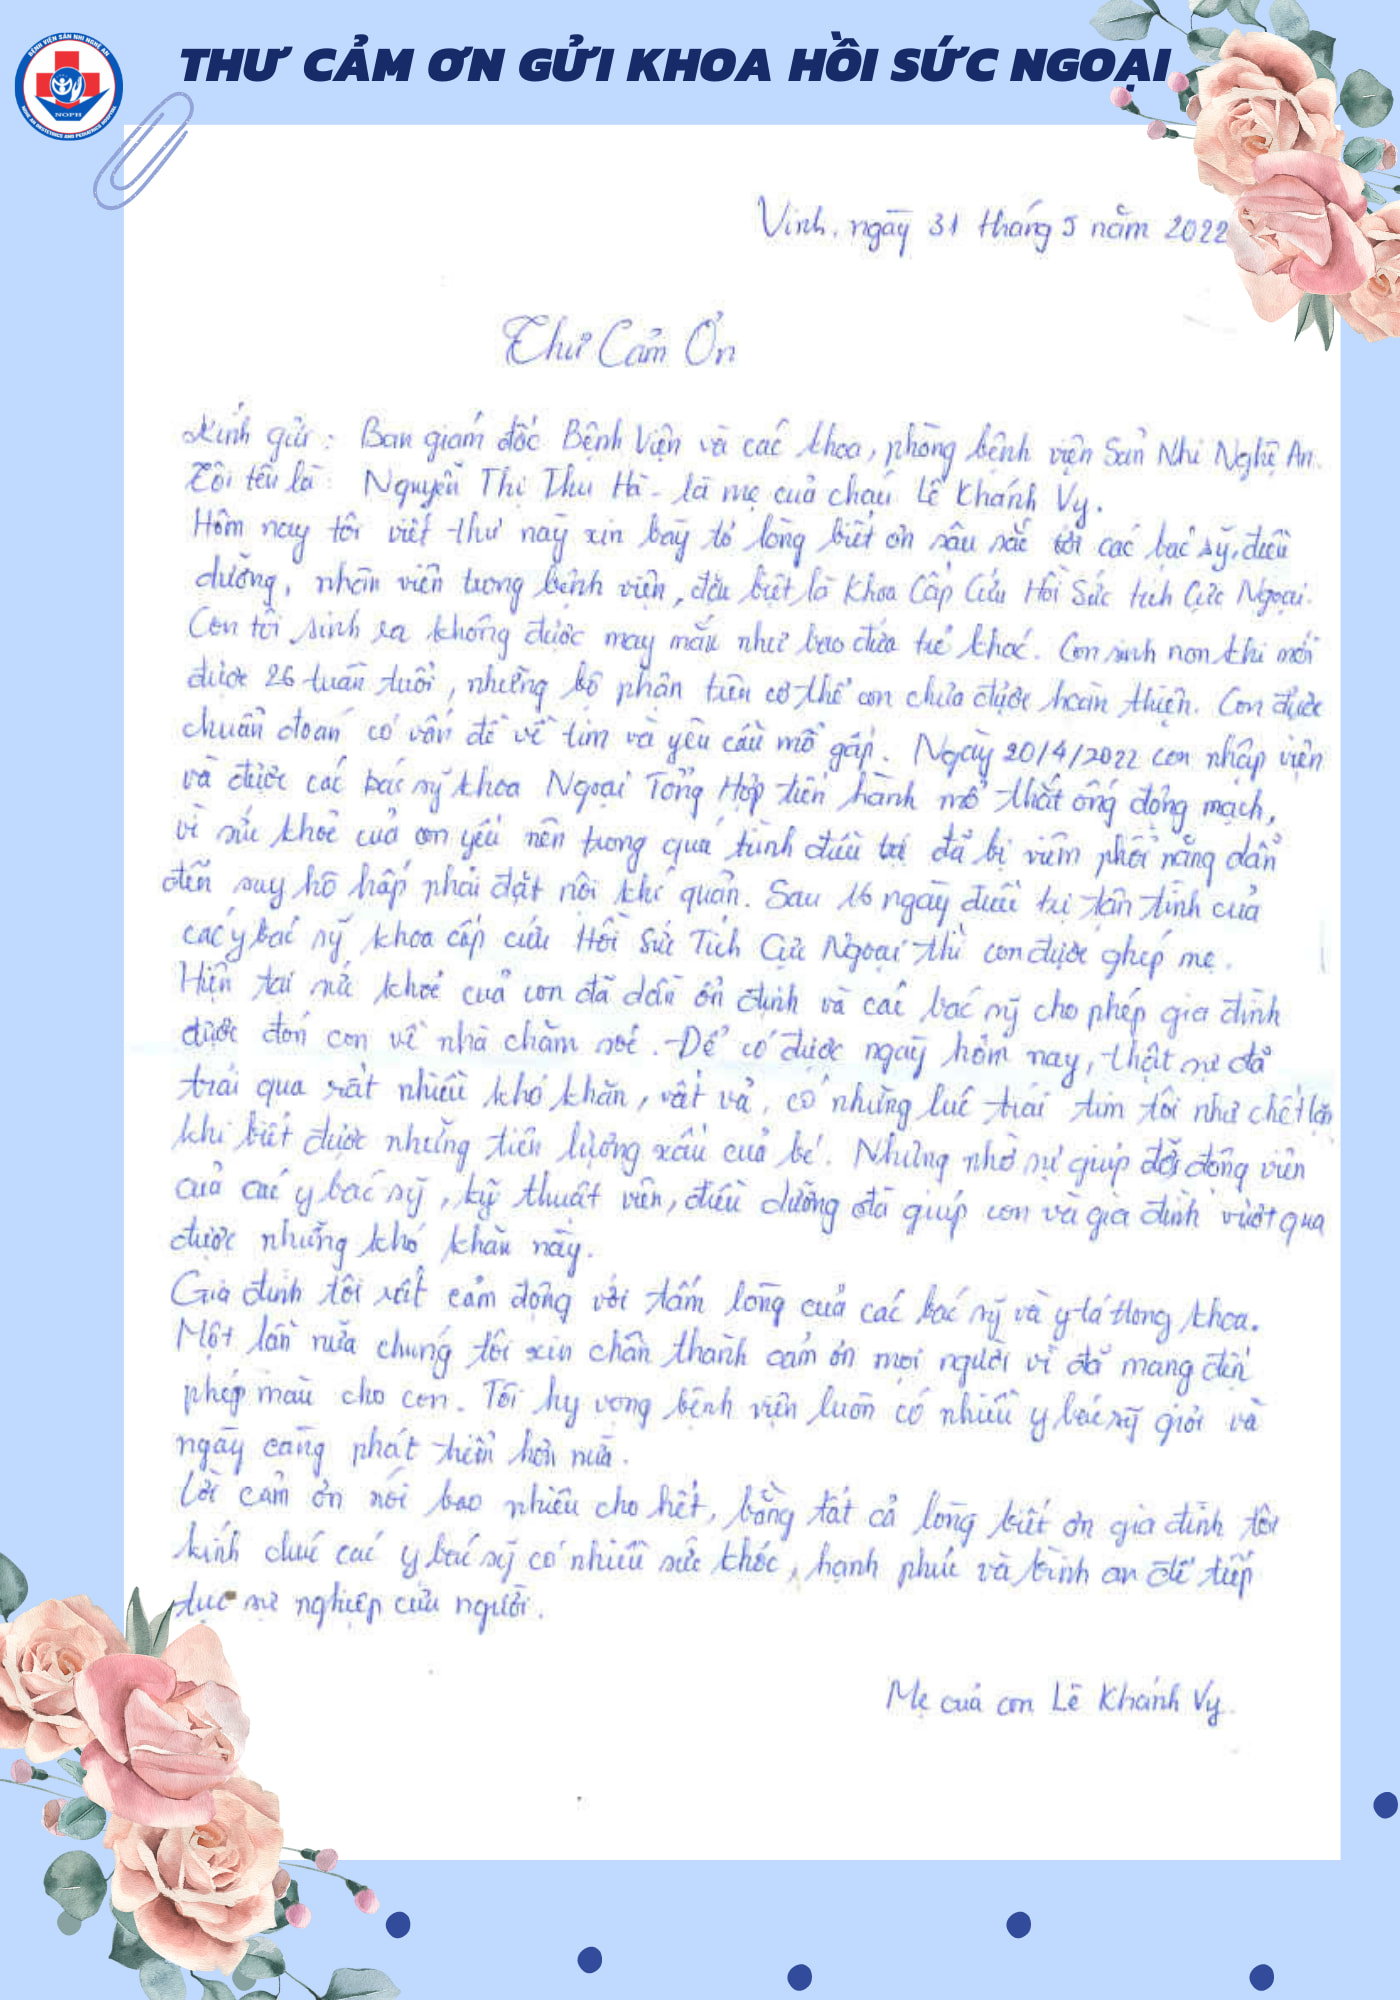 THƯ CẢM ƠN GỬI KHOA HỒI SỨC NGOẠI
BỆNH VIỆN SẢN NHI NGHỆ AN
NOPH
NGHE AN OBSTETRICS AND PEDIATRICS HOSPITAL
Vinh, ngày 31 tháng 5 năm 2022
Thư Cảm Ơn
Kính gửi: Ban giám đốc Bệnh Viện và các khoa, phòng bệnh viện Sản Nhi Nghệ An.
Tôi tên là: Nguyễn Thị Thu Hà - là mẹ của cháu Lê Khánh Vy.
Hôm nay tôi viết thư này xin bày tỏ lòng biết ơn sâu sắc tới các bác sỹ, điều
dưỡng, nhân viên trong bệnh viện, đặc biệt là Khoa Cấp Cứu Hồi Sức tích Cực Ngoại.
Con tôi sinh ra không được may mắn như bao đứa trẻ khác. Con sinh non khi mới
được 26 tuần tuổi, những bộ phận trên cơ thể con chưa được hoàn thiện. Con được
chuẩn đoán có vấn đề về tim và yêu cầu mổ gấp. Ngày 20/4/2022 con nhập viện
và được các bác sỹ khoa Ngoại Tổng Hợp tiến hành mổ thắt ống động mạch,
vì sức khoẻ của con yếu nên trong quá trình điều trị đã bị viêm phổi nặng dẫn
đến suy hô hấp phải đặt nội khí quản. Sau 16 ngày điều trị tận tình của
các y bác sỹ khoa cấp cứu Hồi Sức Tích Cực Ngoại thì con được ghép mẹ.
Hiện tại sức khoẻ của con đã dần ổn định và các bác sỹ cho phép gia đình
được đón con về nhà chăm sóc. Để có được ngày hôm nay, thật sự đã
trải qua rất nhiều khó khăn, vất vả, có những lúc trái tim tôi như chết lặn
khi biết được những tiên lượng xấu của bé. Nhưng nhờ sự giúp đỡ, động viên
của các y bác sỹ, kỹ thuật viên, điều dưỡng đã giúp con và gia đình vượt qua
được những khó khăn này.
Gia đình tôi rất cảm động với tấm lòng của các bác sỹ và y tá trong khoa.
Một lần nữa chúng tôi xin chân thành cảm ơn mọi người vì đã mang đến
phép màu cho con. Tôi hy vọng bệnh viện luôn có nhiều y bác sỹ giỏi và
ngày càng phát triển hơn nữa.
Lời cảm ơn nói bao nhiêu cho hết, bằng tất cả lòng biết ơn gia đình tôi
kính chúc các y bác sỹ có nhiều sức khỏe, hạnh phúc và bình an để tiếp
tục sự nghiệp cứu người.
Mẹ của con Lê Khánh Vy.